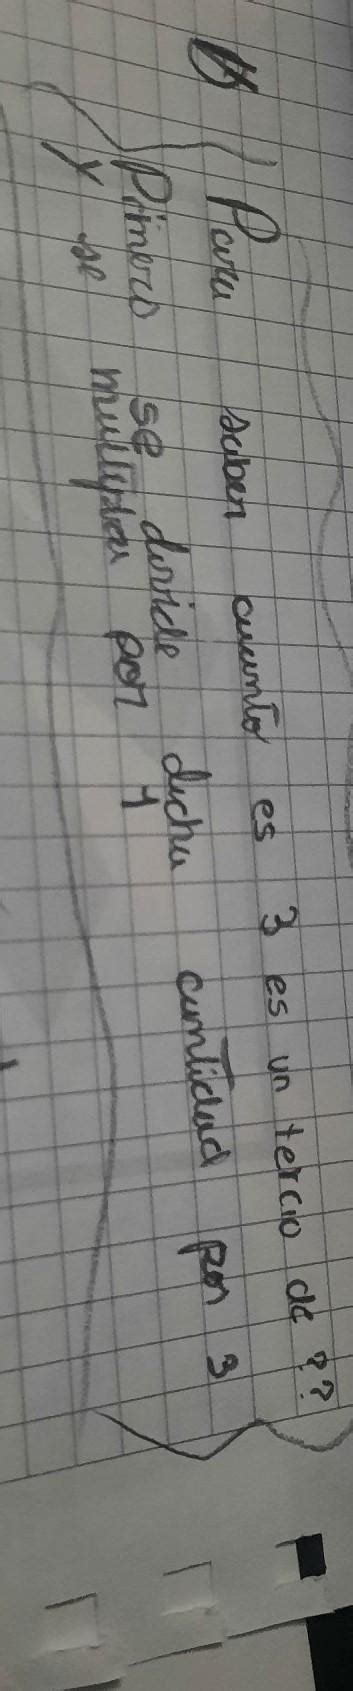 Para saber cuanto es 3 es un tercio de ??
Primero se divide dicha cantidad por 3
y se multiplica por 1